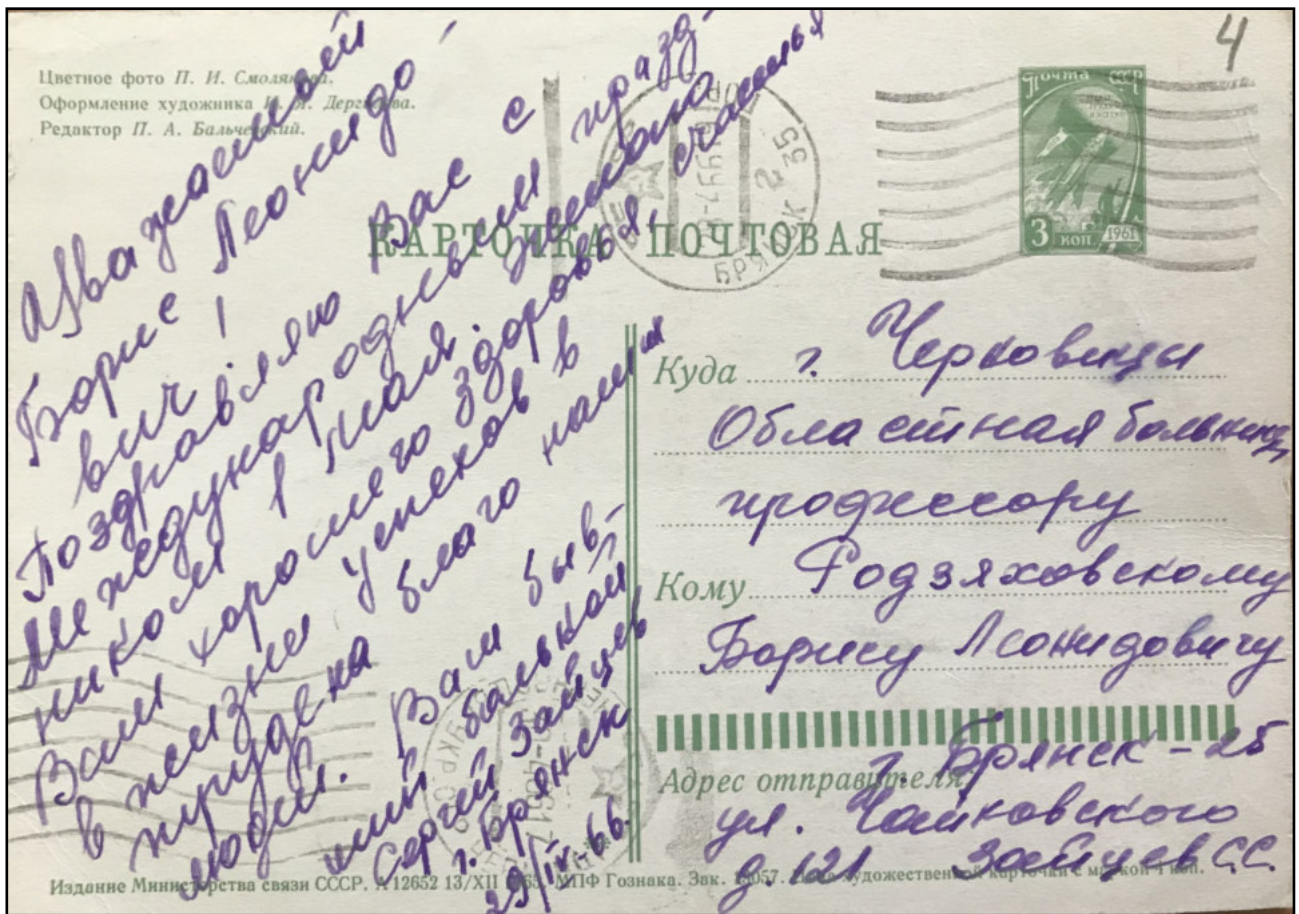 4
Цветное фото П. И. Смолякова.
Оформление художника И. Я. Дергилева.
Редактор П. А. Бальчевский.
Почта СССР
3 коп. 1961
КАРТОЧКА ПОЧТОВАЯ
БРЯНСК 2
35
Уважаемый
Борис Леонидо-
вич!
Поздравляю Вас с
Международным празд-
ником 1 мая. Желаю
Вам хорошего здоровья, счастья
в жизни успехов в
труде на благо наших
людей.
Ваш быв-
ший больной
Сергей Зайцев
г. Брянск
29/IV-66.
Куда г. Черковицы
Областная больница
профессору
Кому Родзяховскому
Борису Леонидовичу
Адрес отправителя
г. Брянск-25
ул. Чайковского
д. 121 Зайцев С.С.
Издание Министерства связи СССР. А 12652 13/XII 1965. МПФ Гознака. Зак. Цена художественной карточки с маркой 4 коп.